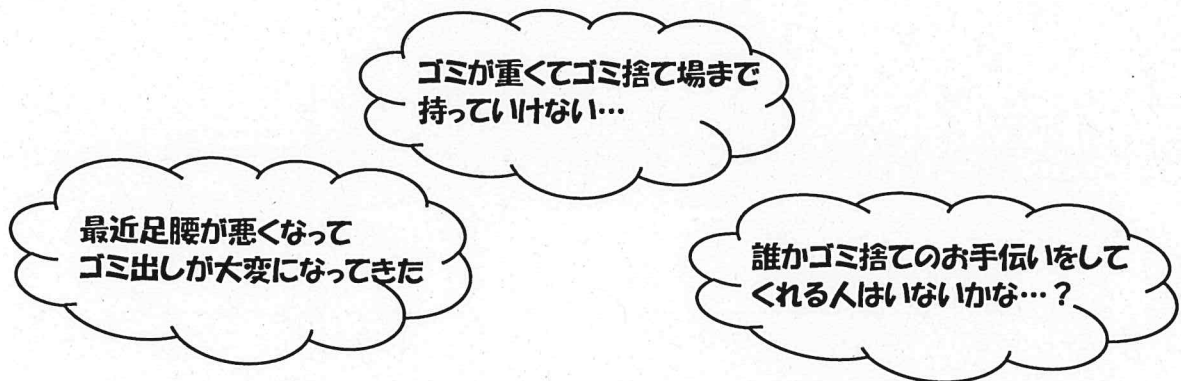 ゴミが重くてゴミ捨て場まで
持っていけない…
最近足腰が悪くなって
ゴミ出しが大変になってきた
誰かゴミ捨てのお手伝いをして
くれる人はいないかな…？